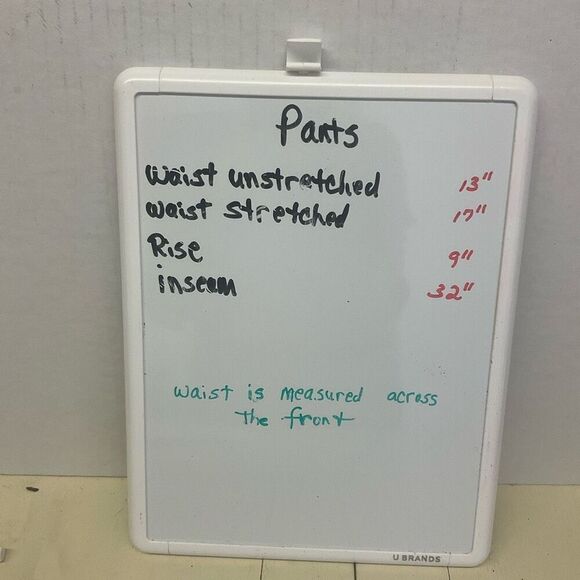 Pants
waist unstretched 13"
waist stretched 17"
Rise 9"
inseam 32"
waist is measured across
the front
U BRANDS